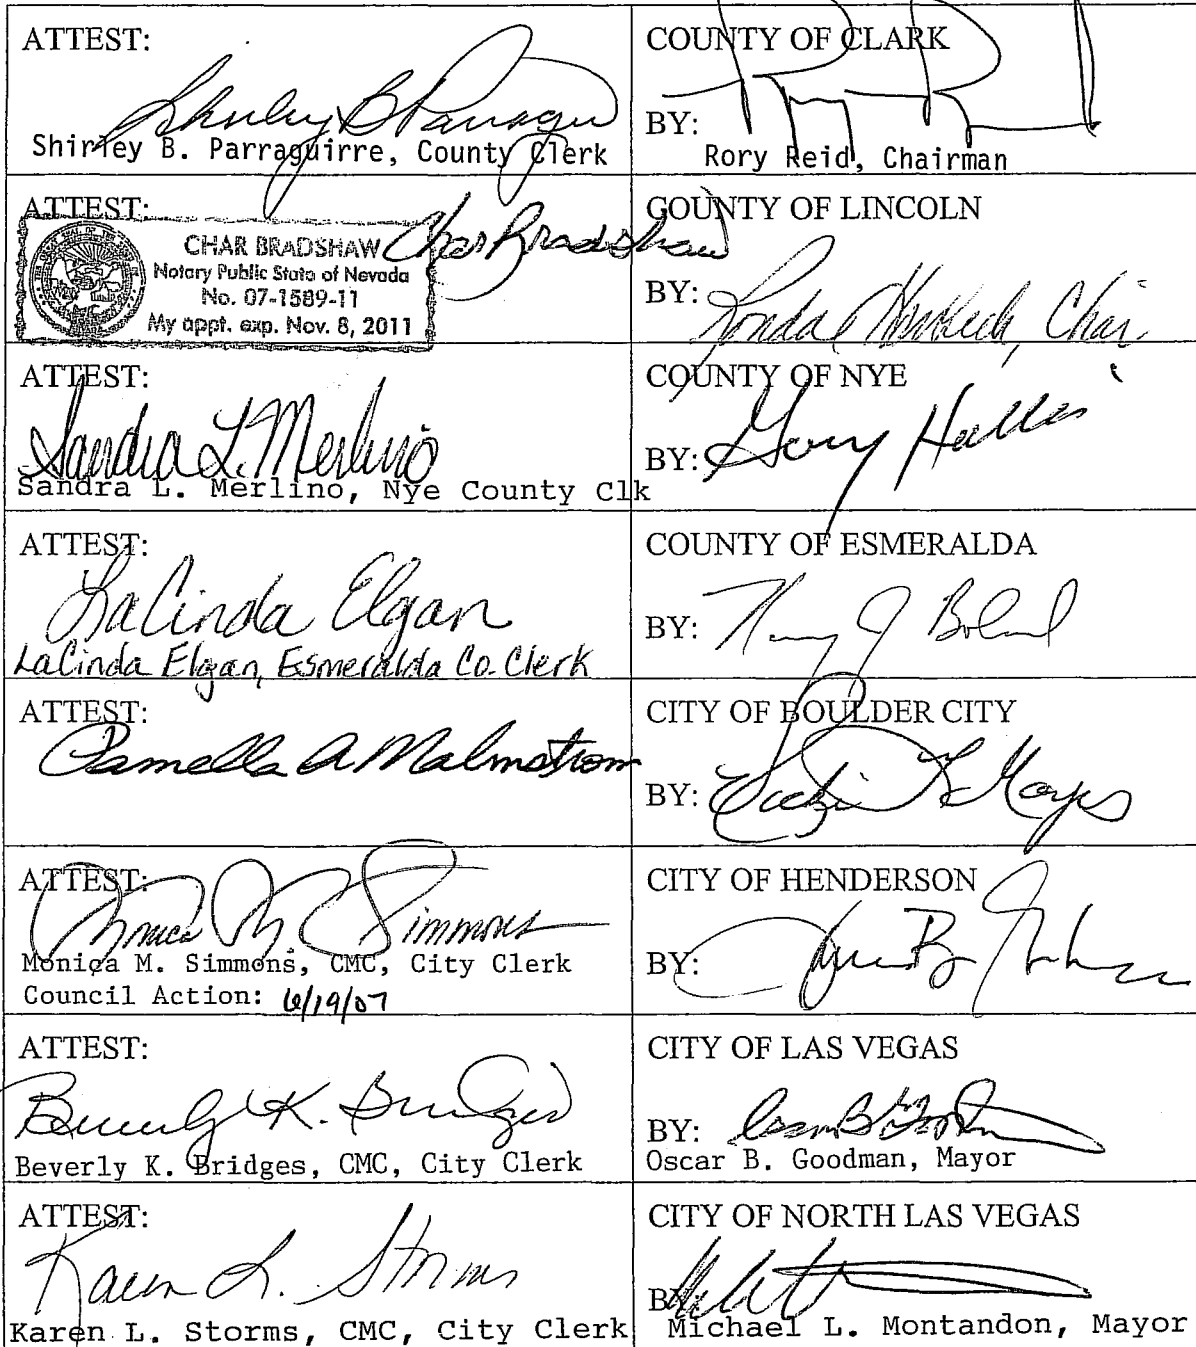 ATTEST:
Shirley B Parraguirre
Shirley B. Parraguirre, County Clerk
COUNTY OF CLARK
BY:
Rory Reid, Chairman
ATTEST:
CHAR BRADSHAW
Notary Public State of Nevada
No. 07-1589-11
My appt. exp. Nov. 8, 2011
Char Bradshaw
COUNTY OF LINCOLN
BY: Ronda Chair
ATTEST:
Sandra L. Merlino
Sandra L. Merlino, Nye County Clk
COUNTY OF NYE
BY: Gary Hollis
ATTEST:
LaCinda Elgan
LaCinda Elgan, Esmeralda Co. Clerk
COUNTY OF ESMERALDA
BY: J Boland
ATTEST:
Pamella A Malmstrom
CITY OF BOULDER CITY
BY: Mayes
ATTEST:
Monica M. Simmons
Monica M. Simmons, CMC, City Clerk
Council Action: 6/19/07
CITY OF HENDERSON
BY:
ATTEST:
Beverly K. Bridges
Beverly K. Bridges, CMC, City Clerk
CITY OF LAS VEGAS
BY: Oscar B Goodman
Oscar B. Goodman, Mayor
ATTEST:
Karen L. Storms
Karen L. Storms, CMC, City Clerk
CITY OF NORTH LAS VEGAS
BY:
Michael L. Montandon, Mayor